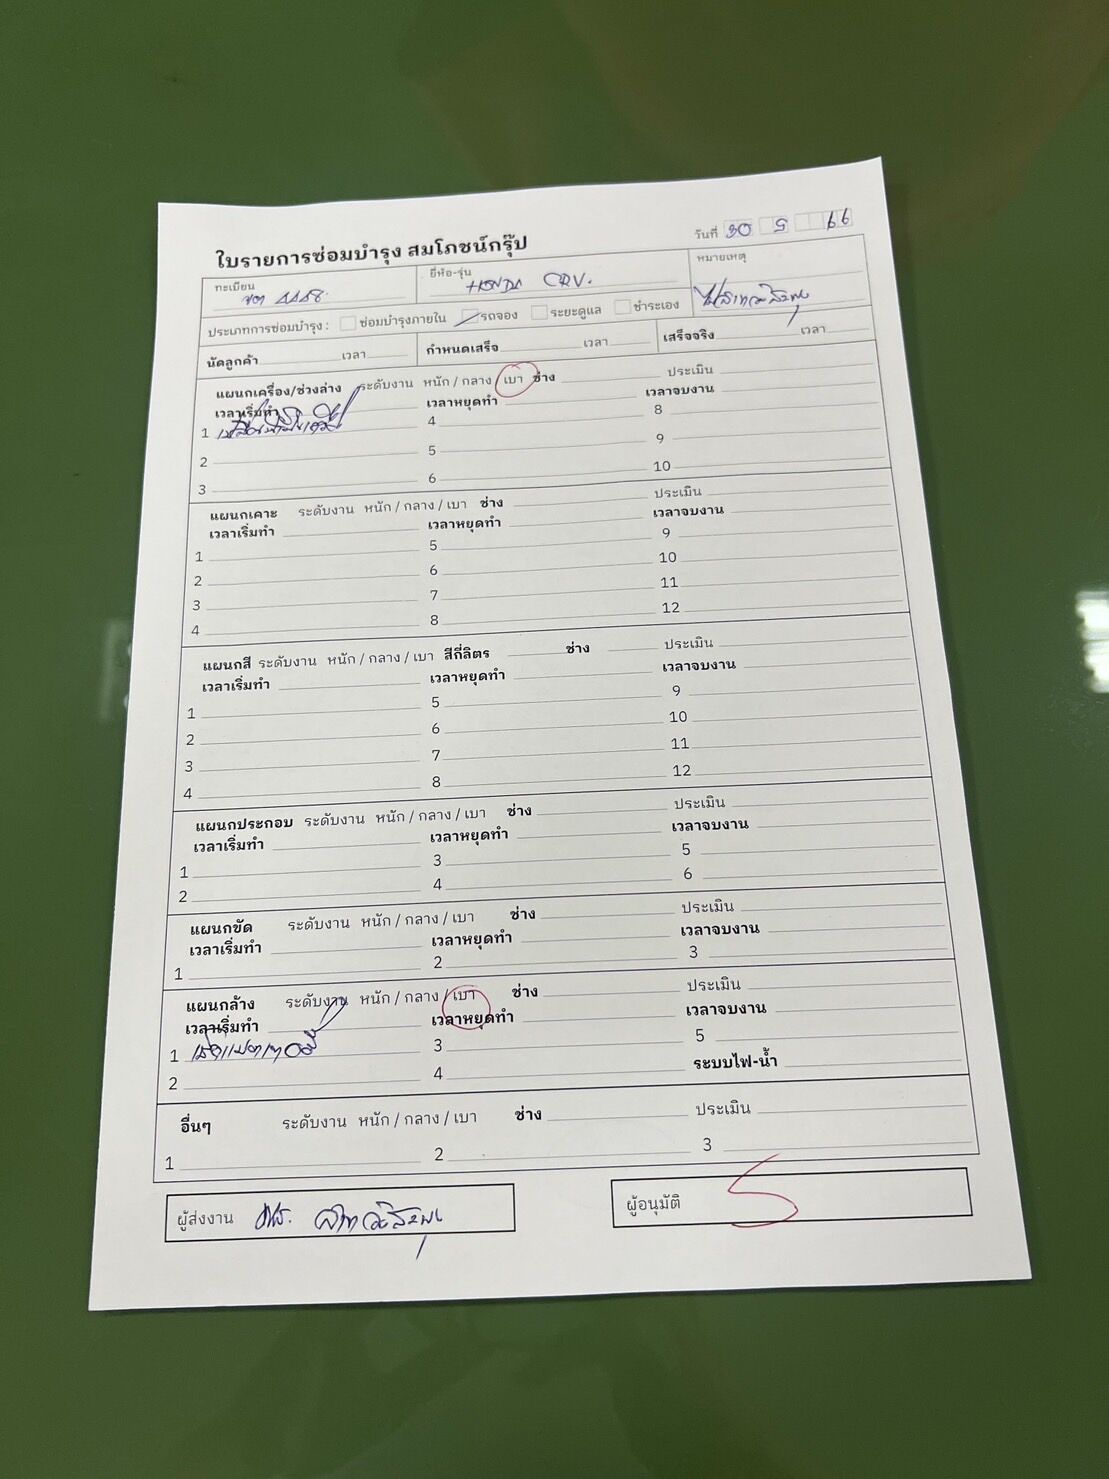 ใบรายการซ่อมบำรุง สมโภชน์กรุ๊ป
วันที่ 30 5 66
ทะเบียน
ยี่ห้อ-รุ่น HONDA CRV.
หมายเหตุ
ประเภทการซ่อมบำรุง : ซ่อมบำรุงภายใน รถจอง ระยะดูแล ชำระเอง
นัดลูกค้า เวลา กำหนดเสร็จ เวลา เสร็จจริง เวลา
แผนกเครื่อง/ช่วงล่าง ระดับงาน หนัก / กลาง / เบา ช่าง ประเมิน
เวลาเริ่มทำ เวลาหยุดทำ เวลาจบงาน
1 4 8
2 5 9
3 6 10
แผนกเคาะ ระดับงาน หนัก / กลาง / เบา ช่าง ประเมิน
เวลาเริ่มทำ เวลาหยุดทำ เวลาจบงาน
1 5 9
2 6 10
3 7 11
4 8 12
แผนกสี ระดับงาน หนัก / กลาง / เบา สีกี่ลิตร ช่าง ประเมิน
เวลาเริ่มทำ เวลาหยุดทำ เวลาจบงาน
1 5 9
2 6 10
3 7 11
4 8 12
แผนกประกอบ ระดับงาน หนัก / กลาง / เบา ช่าง ประเมิน
เวลาเริ่มทำ เวลาหยุดทำ เวลาจบงาน
1 3 5
2 4 6
แผนกขัด ระดับงาน หนัก / กลาง / เบา ช่าง ประเมิน
เวลาเริ่มทำ เวลาหยุดทำ เวลาจบงาน
1 2 3
แผนกล้าง ระดับงาน หนัก / กลาง / เบา ช่าง ประเมิน
เวลาเริ่มทำ เวลาหยุดทำ เวลาจบงาน
1 3 5
2 4 ระบบไฟ-น้ำ
อื่นๆ ระดับงาน หนัก / กลาง / เบา ช่าง ประเมิน
1 2 3
ผู้ส่งงาน
ผู้อนุมัติ